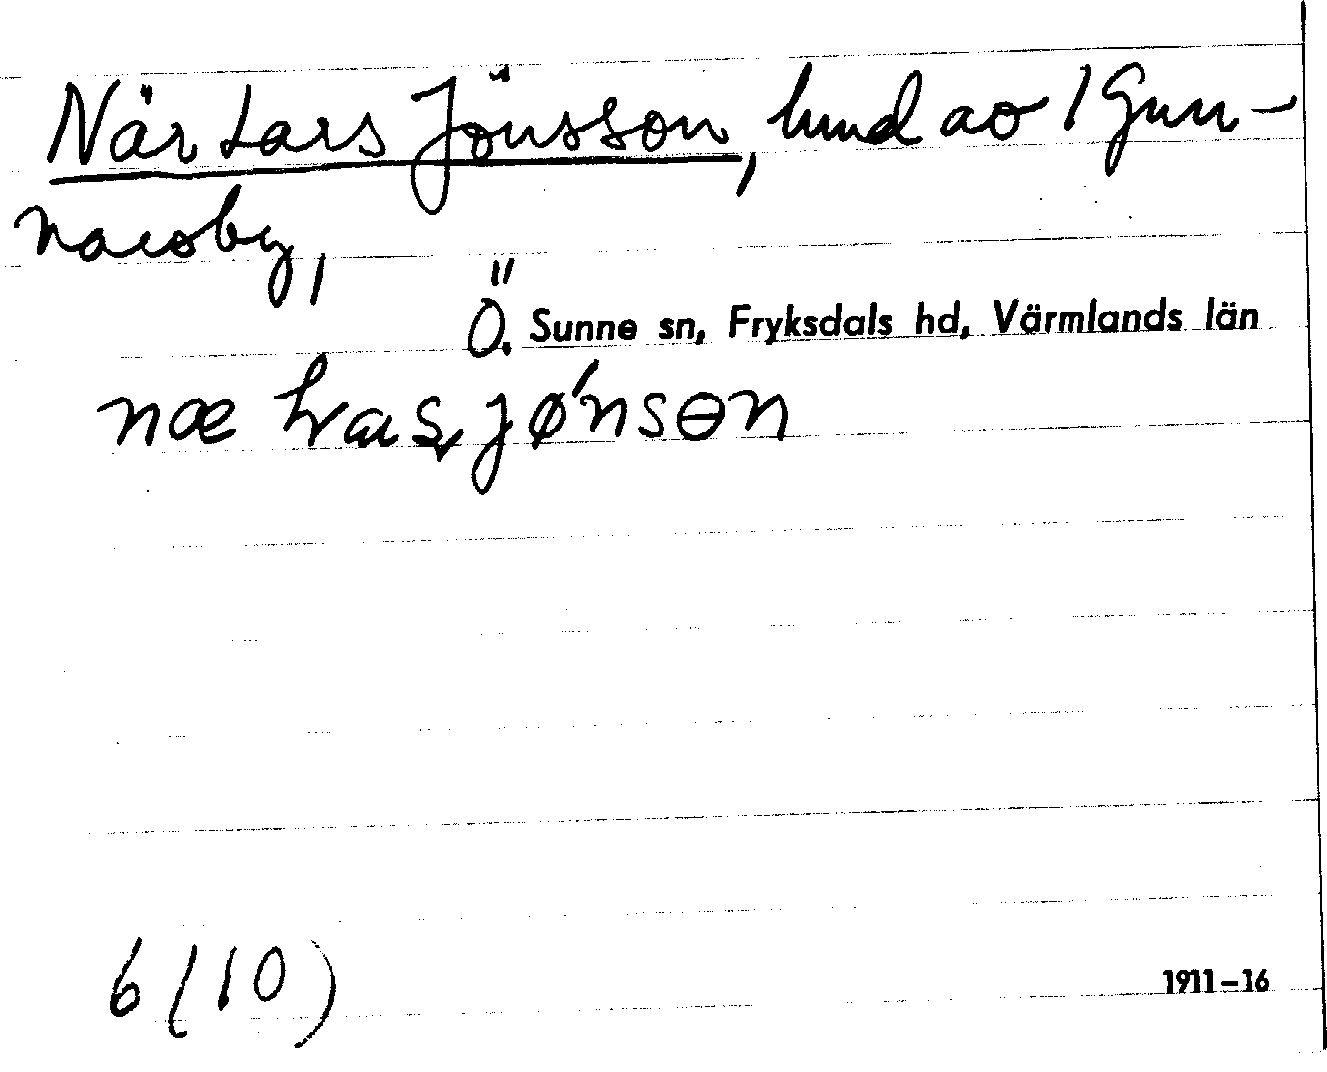 När Lars Jönsson, hmd av 1 Gun-
narsby,
Ö. Sunne sn, Fryksdals hd, Värmlands län
6 (10)
1911-16